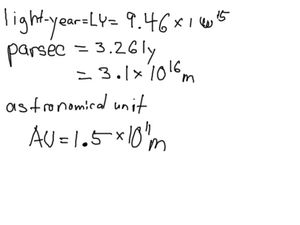 light-year=LY= 9.46 × 10¹⁵
parsec = 3.26ly
= 3.1 × 10¹⁶ m
astronomical unit
AU = 1.5 × 10¹¹ m